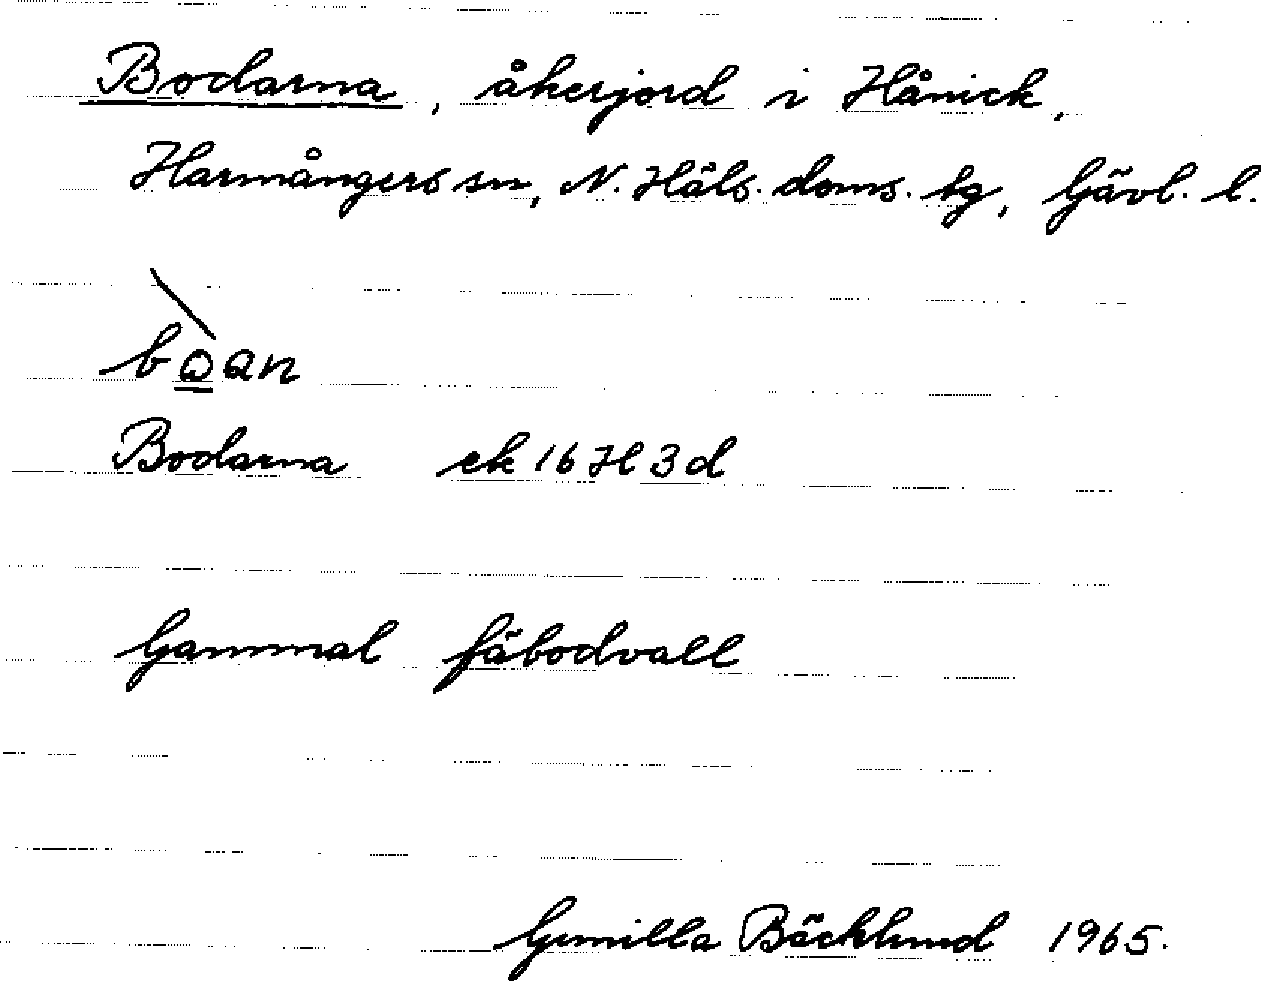 Bodarna, åkerjord i Hånick,
Harmångers sn, N. Häls. doms. tg, Gävl. l.
bò̲̲an
Bodarna ek 16 H 3 d
Gammal fäbodvall
Gunilla Bäcklund 1965.